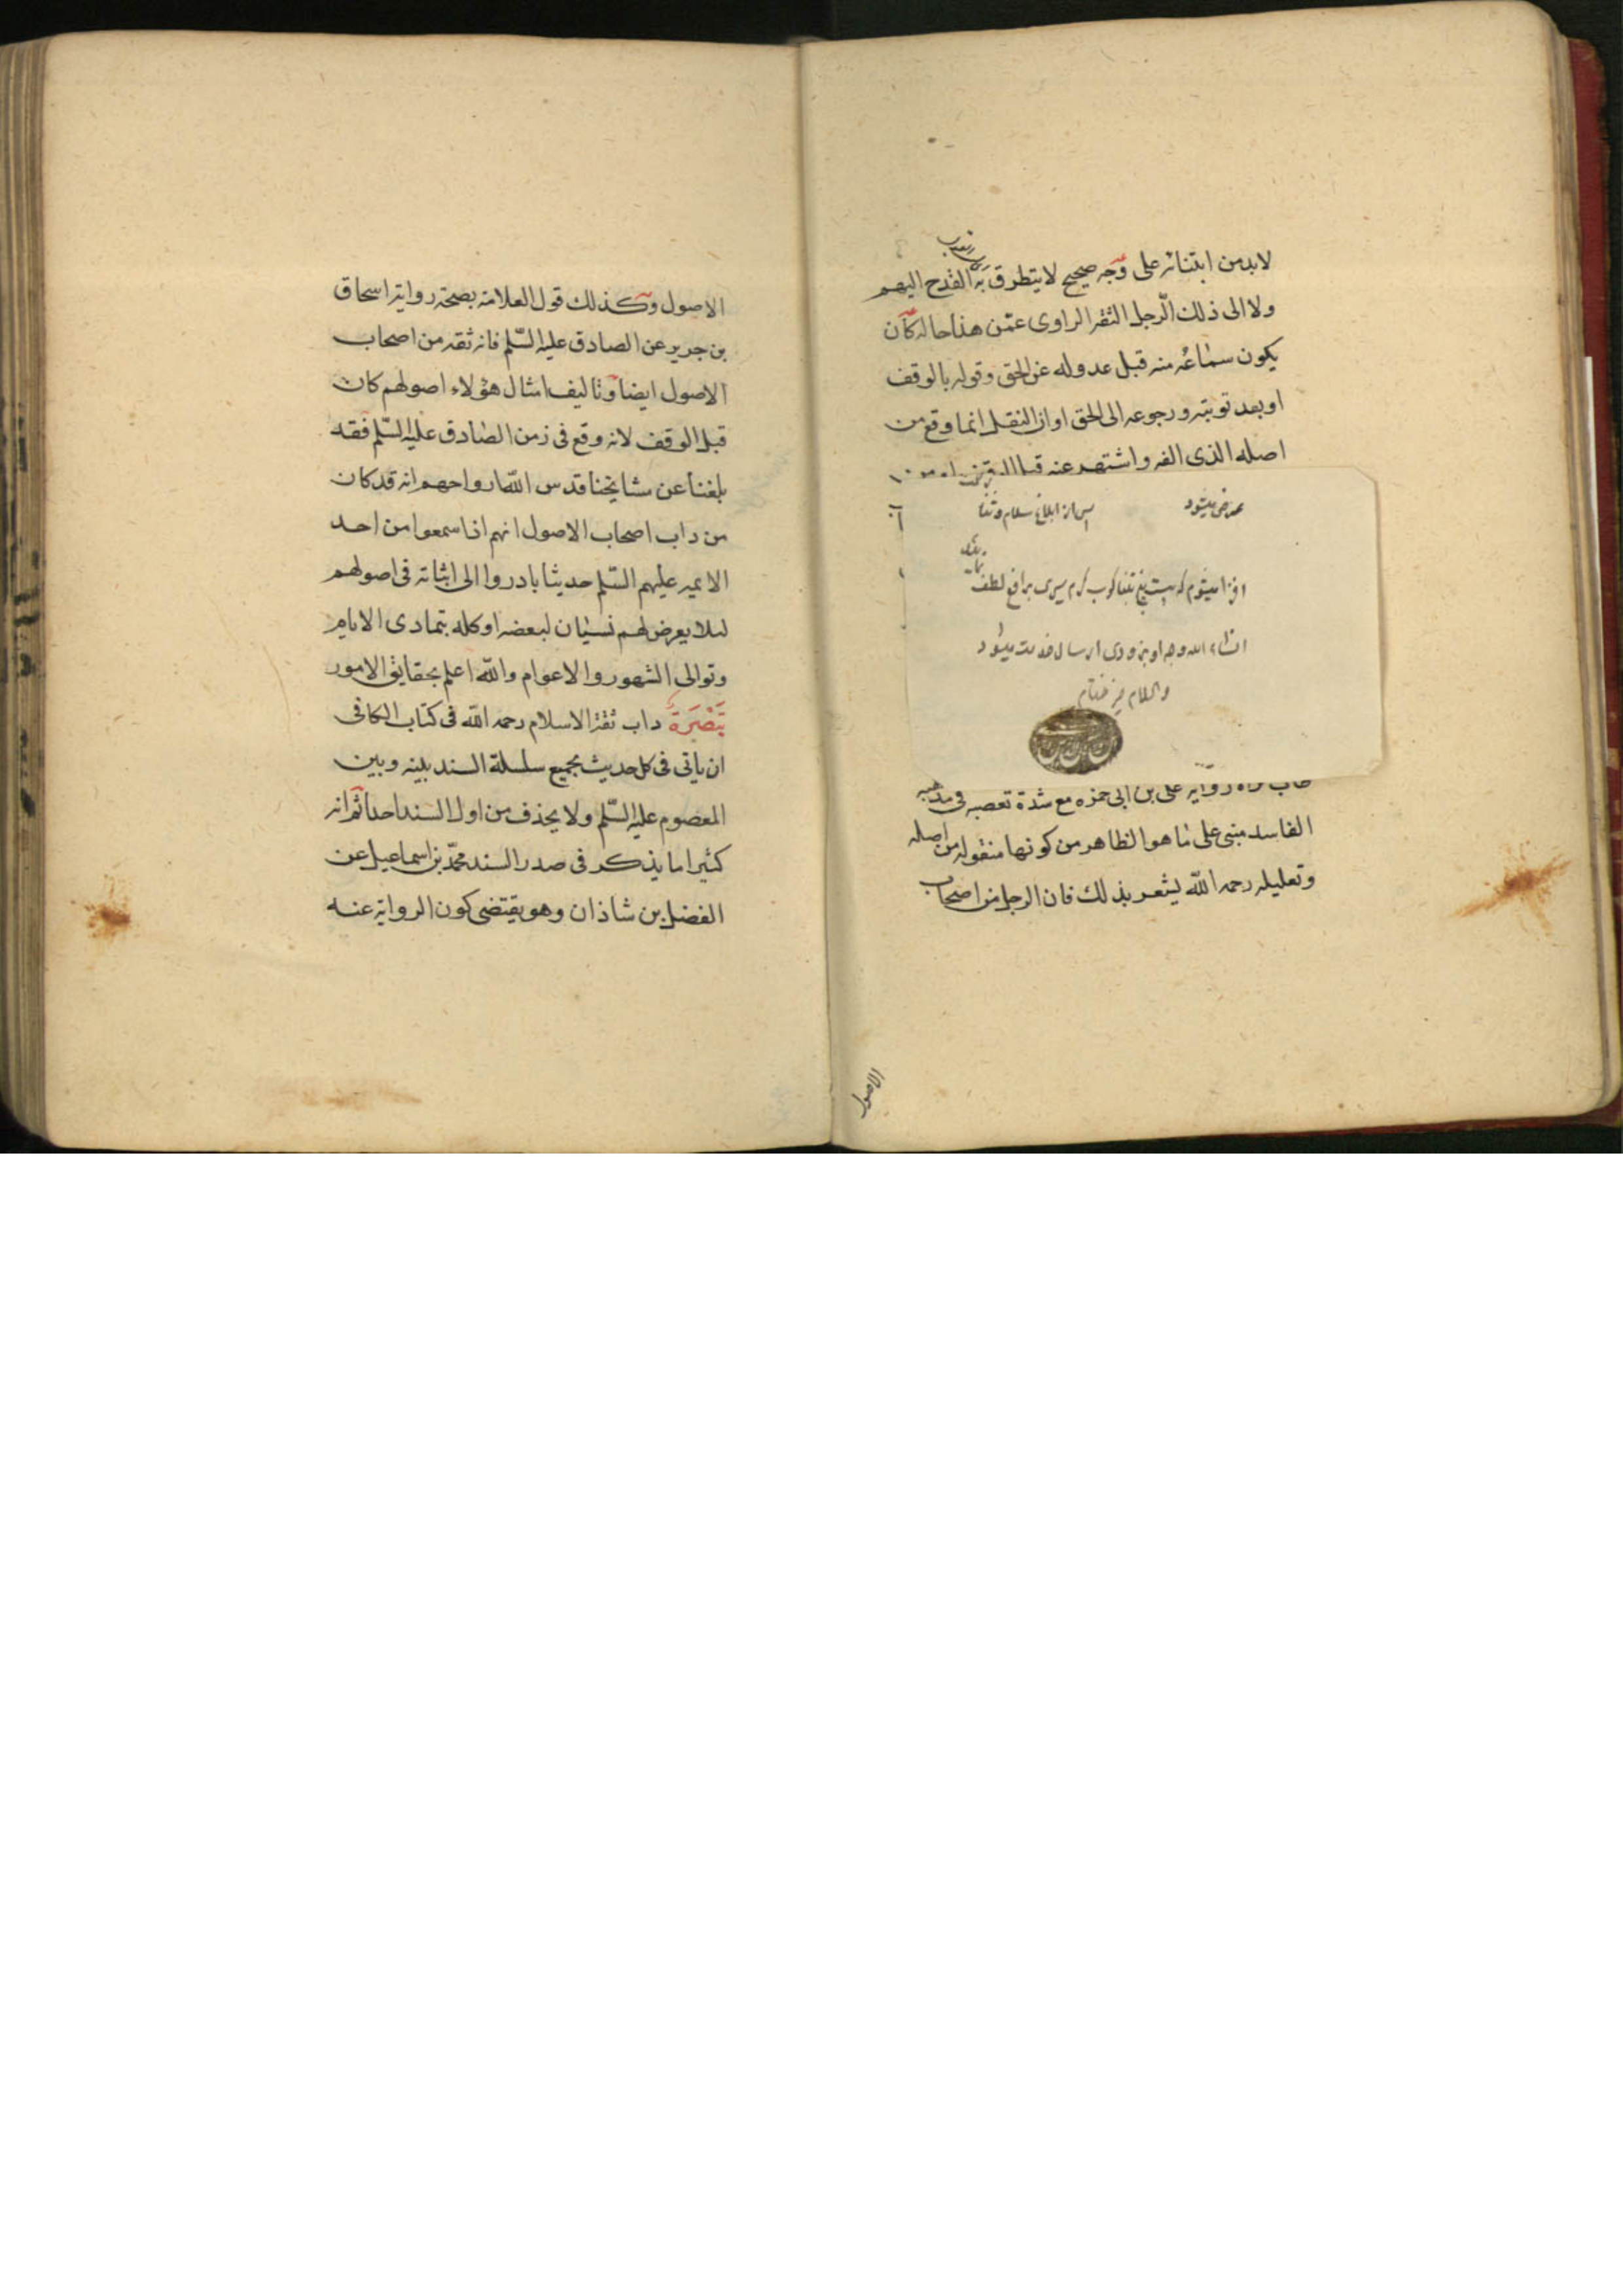 لابد من ابتنائه على وجه صحيح لا يتطرق به القدح اليهم
ولا الى ذلك الرجل الثقه الراوى عمن هذا حاله كان
يكون سماعه منه قبل عدوله عن الحق وقوله بالوقف
او بعد توبته ورجوعه الى الحق او ان النقل انما وقع من
اصله الذى الفه واشتهر عنه قبل
عرض میشود
پس از ابلاغ سلام و ثنا
انشاء الله وجه او بزودی ارسال خدمت میشود
والسلام خیر ختام
روایه على بن ابى حمزه مع شدة تعصبه فى مذهبه
الفاسد مبنى على ما هو الظاهر من كونها منقوله من اصله
وتعليله رحمه الله يشعر بذلك فان الرجل من اصحاب
الاصول
الاصول وكذلك قول العلامه بصحة روايه اسحاق
بن جرير عن الصادق عليه السلم فانه ثقه من اصحاب
الاصول ايضا وتاليف امثال هؤلاء اصولهم كان
قبل الوقف لانه وقع فى زمن الصادق عليه السلم فقد
بلغنا عن مشايخنا قدس الله ارواحهم انه قد كان
من داب اصحاب الاصول انهم اذا سمعوا من احد
الايمه عليهم السلم حديثا بادروا الى اثباته فى اصولهم
لئلا يعرض لهم نسيان لبعضه او كله بتمادى الايام
وتوالى الشهور والاعوام والله اعلم بحقايق الامور
تبصرة داب ثقة الاسلام رحمه الله فى كتاب الكافى
ان ياتى فى كل حديث بجميع سلسلة السند بينه وبين
المعصوم عليه السلم ولا يحذف من اول السند احدا ثم انه
كثيرا ما يذكر فى صدر السند محمد بن اسماعيل عن
الفضل بن شاذان وهو يقتضى كون الروايه عنه